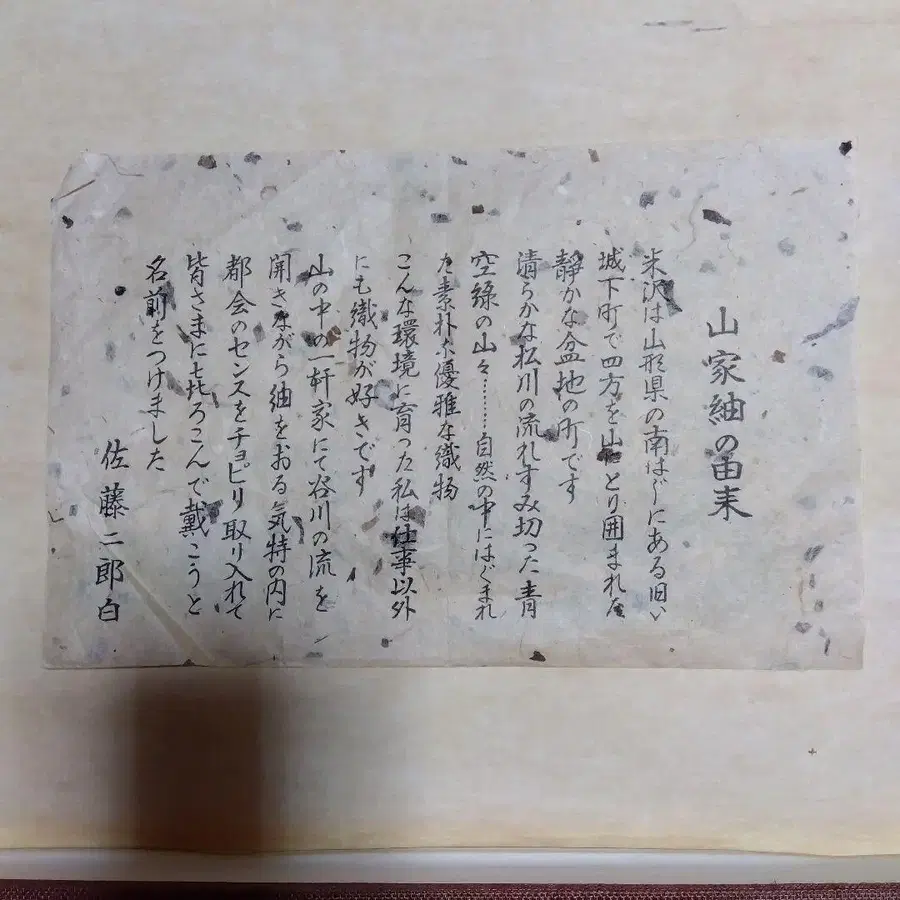 山家紬の由来
米沢は山形県の南はじにある旧い
城下町で四方を山にとり囲まれた
静かな盆地の町です
清らかな松川の流れすみ切った青
空緑の山々………自然の中にはぐまれ
た素朴な優雅な織物
こんな環境に育った私は仕事以外
にも織物が好きです
山の中の一軒家にて谷川の流を
開きながら紬をおる気特の内に
都会のセンスをチョピリ取り入れて
皆さまによろこんで戴こうと
名前をつけました
佐藤二郎白